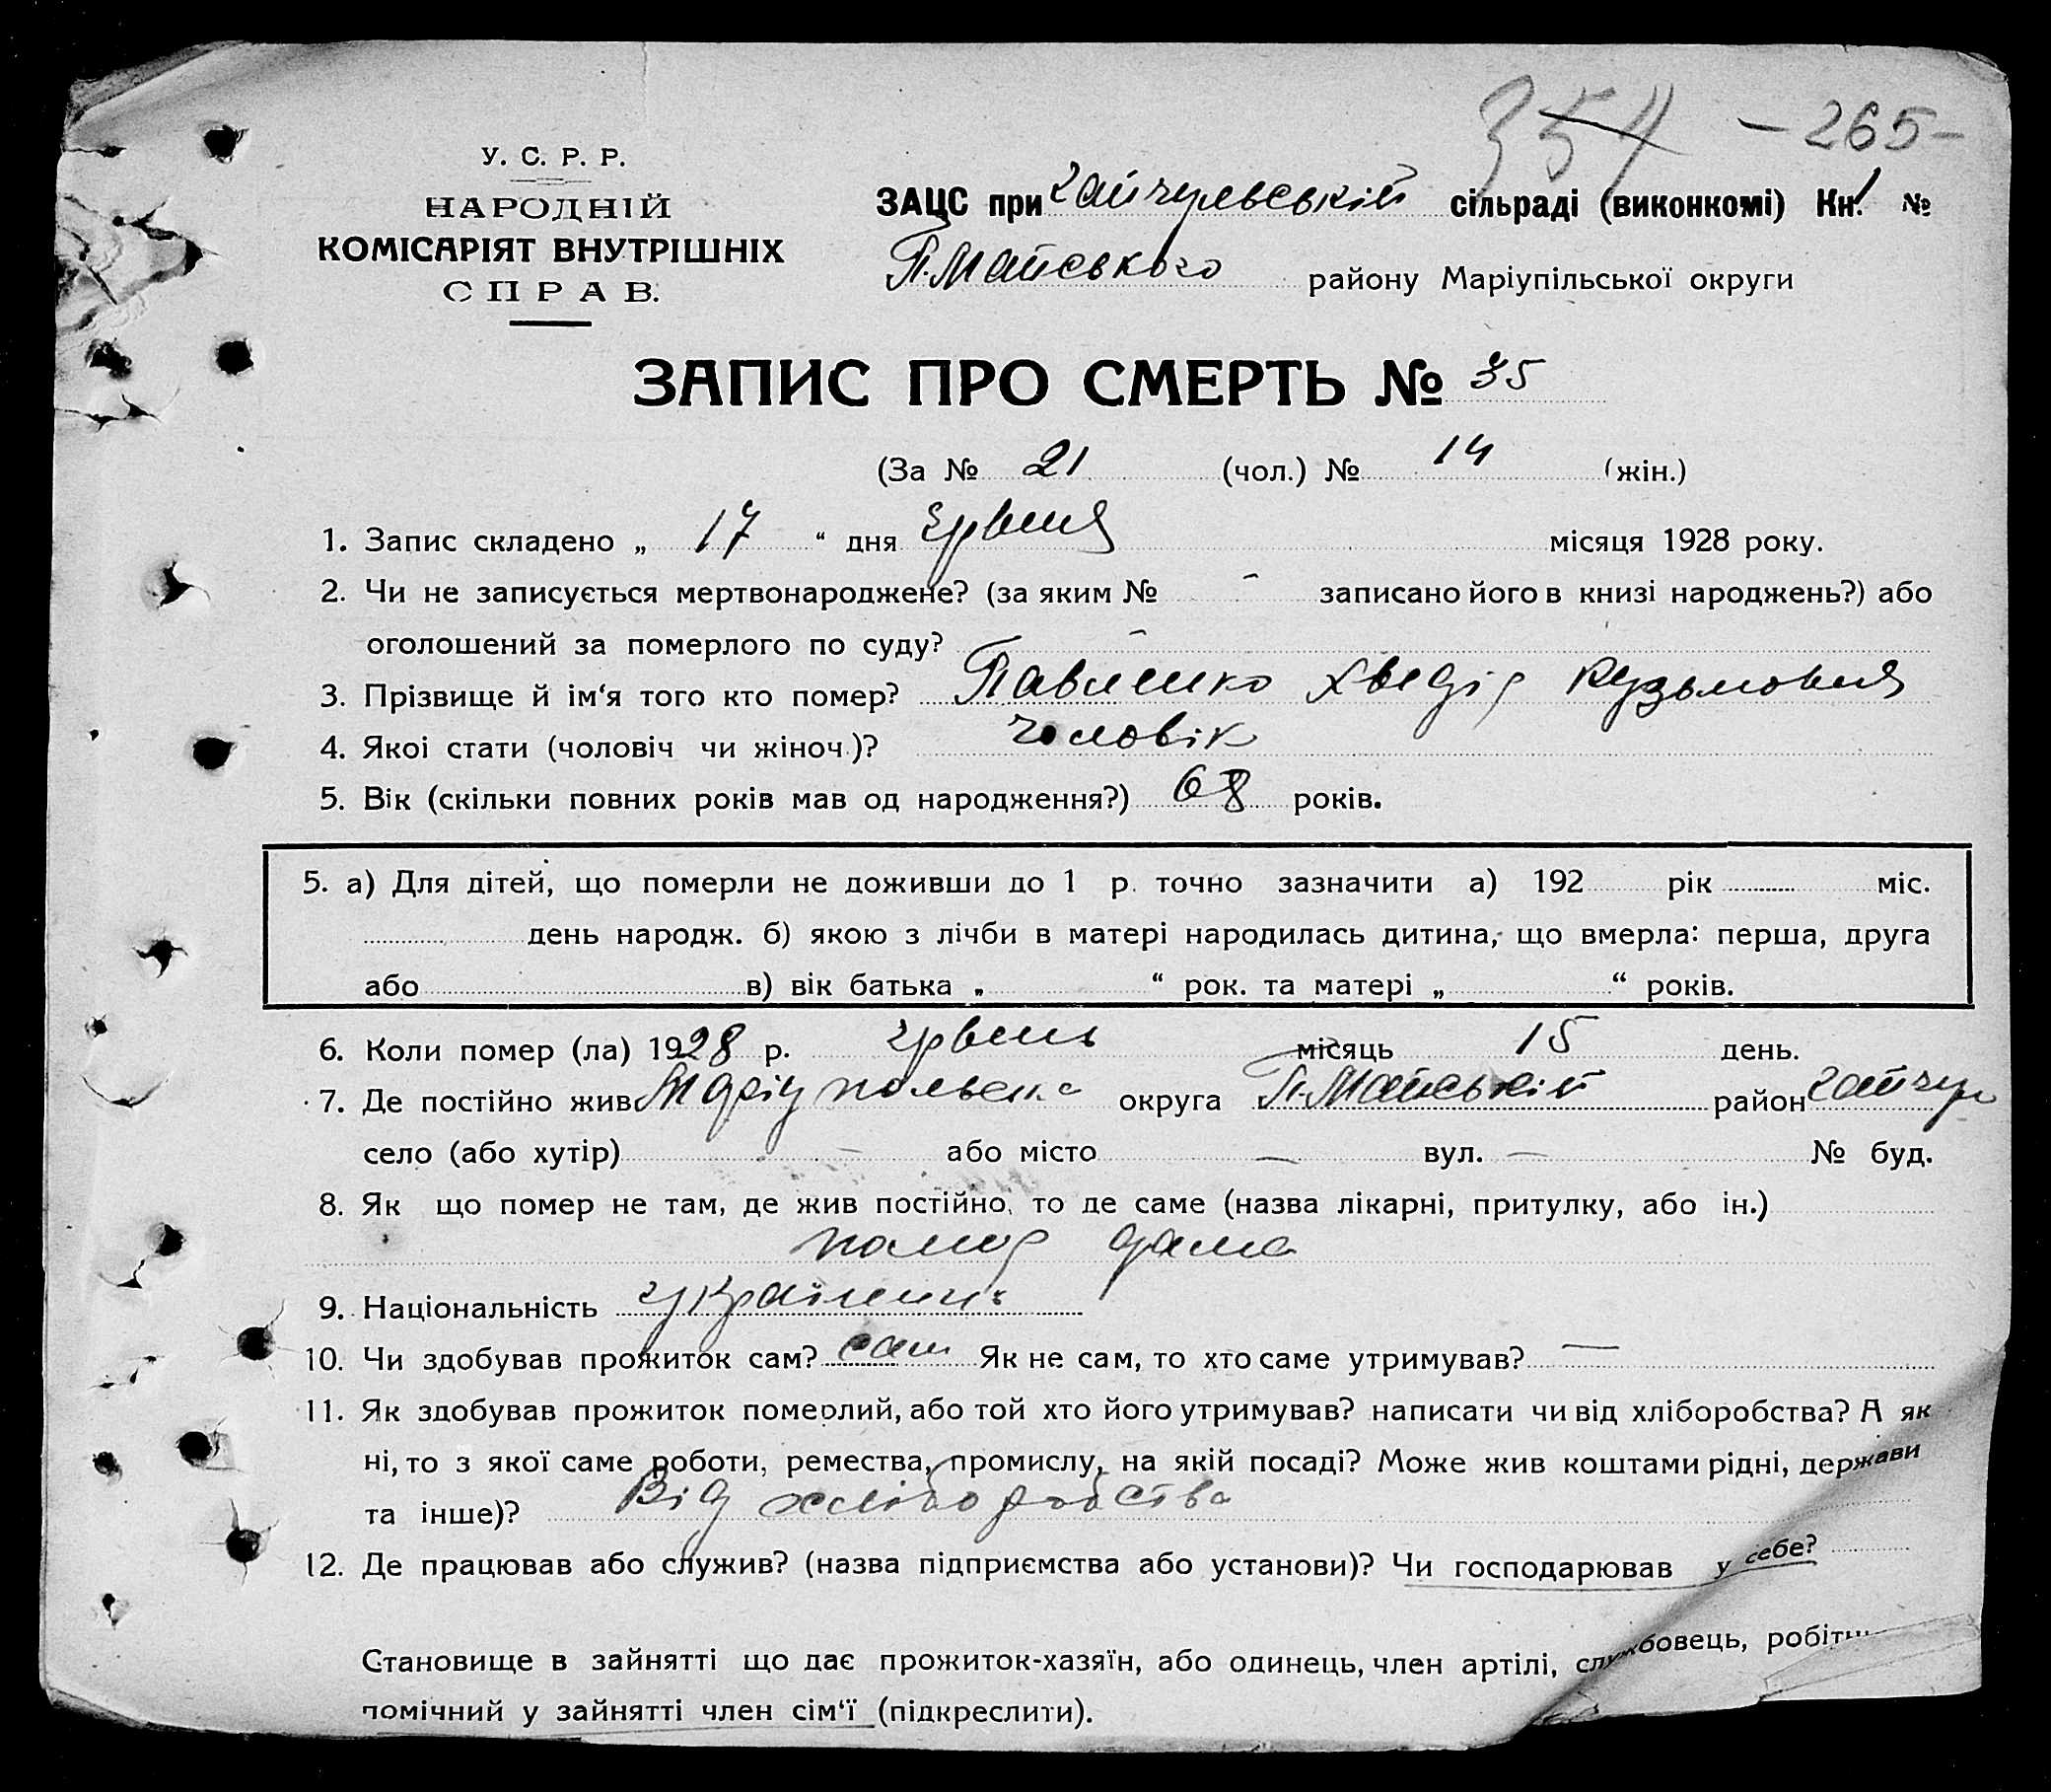 354 - 265 -
У. С. Р. Р.
НАРОДНІЙ
КОМІСАРІЯТ ВНУТРІШНІХ
СПРАВ.
ЗАЦС при Гайчульській сільраді (виконкомі) Кн. 1 №
П.Майського району Маріупільської округи
ЗАПИС ПРО СМЕРТЬ № 35
(За № 21 (чол.) № 14 (жін.)
1. Запис складено „ 17 “ дня червня місяця 1928 року.
2. Чи не записується мертвонароджене? (за яким № - записано його в книзі народжень?) або
оголошений за померлого по суду? -
3. Прізвище й ім‘я того кто помер? Павленко Хведір Кузьмович
4. Якоі стати (чоловіч чи жіноч.)? чоловік
5. Вік (скільки повних років мав од народження?) 68 років.
5. а) Для дітей, що померли не доживши до 1 р. точно зазначити а) 192 рік міс.
день народж. б) якою з лічби в матері народилась дитина, що вмерла: перша, друга
або в) вік батька „ “ рок. та матері „ “ років.
6. Коли помер (ла) 1928 р. червень місяць 15 день.
7. Де постійно жив Маріупольська округа П.Майській район Гайчул
село (або хутір) — або місто — вул. — № буд.
8. Як що помер не там, де жив постійно, то де саме (назва лікарні, притулку, або ін.)
помер дома
9. Національність українець
10. Чи здобував прожиток сам? сам Як не сам, то хто саме утримував? —
11. Як здобував прожиток померлий, або той хто його утримував? написати чи від хліборобства? А як
ні, то з якої саме роботи, ремества, промислу, на якій посаді? Може жив коштами рідні, держави
та інше)? Від хліборобства
12. Де працював або служив? (назва підприємства або установи)? Чи господарював у себе?
Становище в зайнятті що дає прожиток-хазяїн, або одинець, член артілі, службовець, робітн
помічний у зайнятті член сім‘ї (підкреслити).